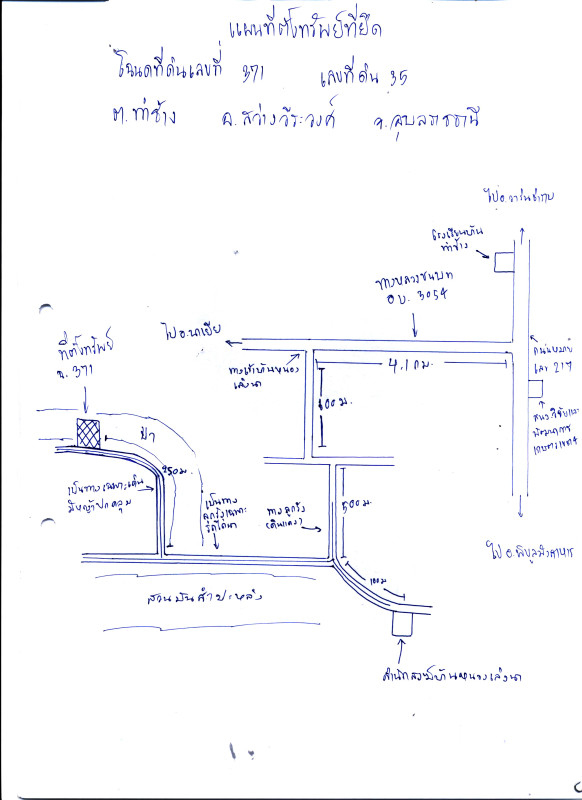 แผนที่ตั้งทรัพย์ที่ยึด
โฉนดที่ดินเลขที่ 371 เลขที่ดิน 35
ต.ท่าช้าง อ.สว่างวีระวงศ์ จ.อุบลราชธานี
ไป อ.วารินชำราบ
โรงเรียนบ้าน
ท่าช้าง
ทางหลวงชนบท
อบ. 3054
ไป อ.นาเยีย
ที่ตั้งทรัพย์
ฉ. 371
ทางเข้าบ้านหนอง
4.1 กม.
ถนนหมาย
เลข 217
600 ม.
ป่า
250 ม.
เป็นทางเฉพาะเดิน
มีหญ้าปกคลุม
เป็นทาง
ลูกรังเฉพาะ
รถไถนา
ทางลูกรัง
(ดินแดง)
500 ม.
ไป อ.พิบูลมังสาหาร
100 ม
สวนมันสำปะหลัง